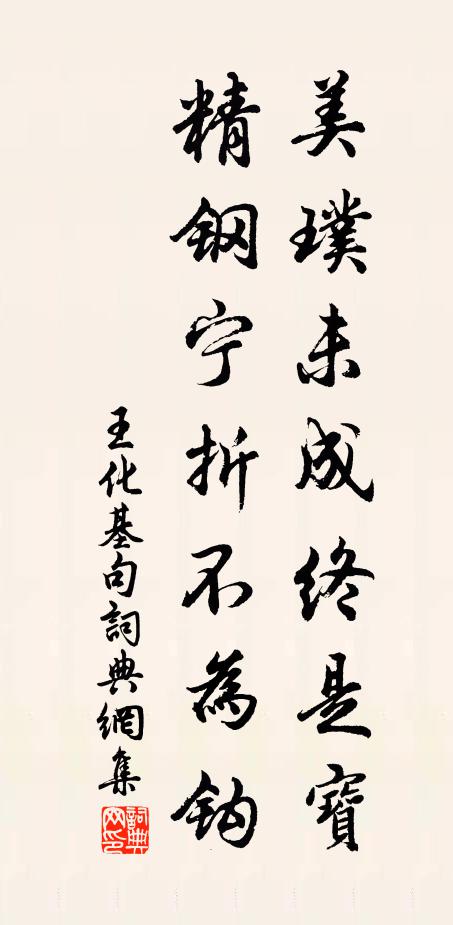 美璞未成終是寶
精鋼宁折不為鈎
王化基句詞典網集
詞典
网印